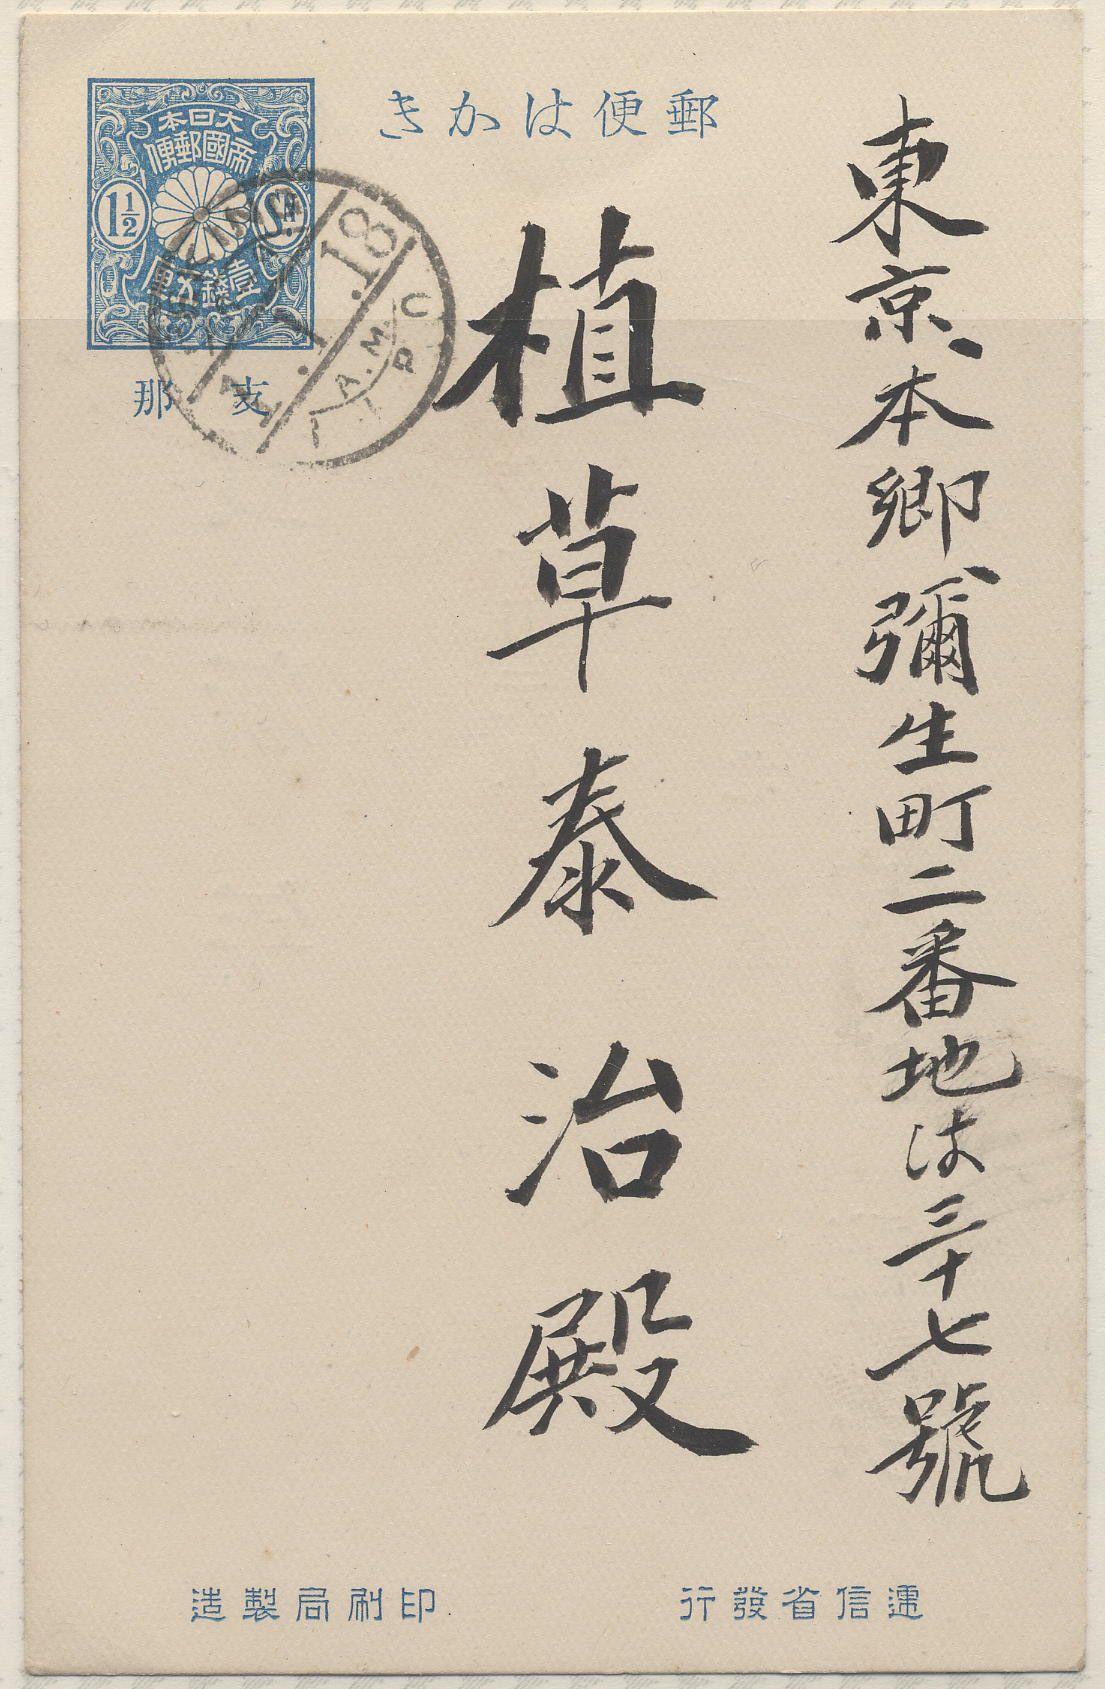 郵便はかき
大日本
帝國郵便
1½
Sn.
壹錢五厘
支那
18
A.M.
東京、本郷、彌生町二番地は三十七號
植草泰治殿
逓信省發行
印刷局製造